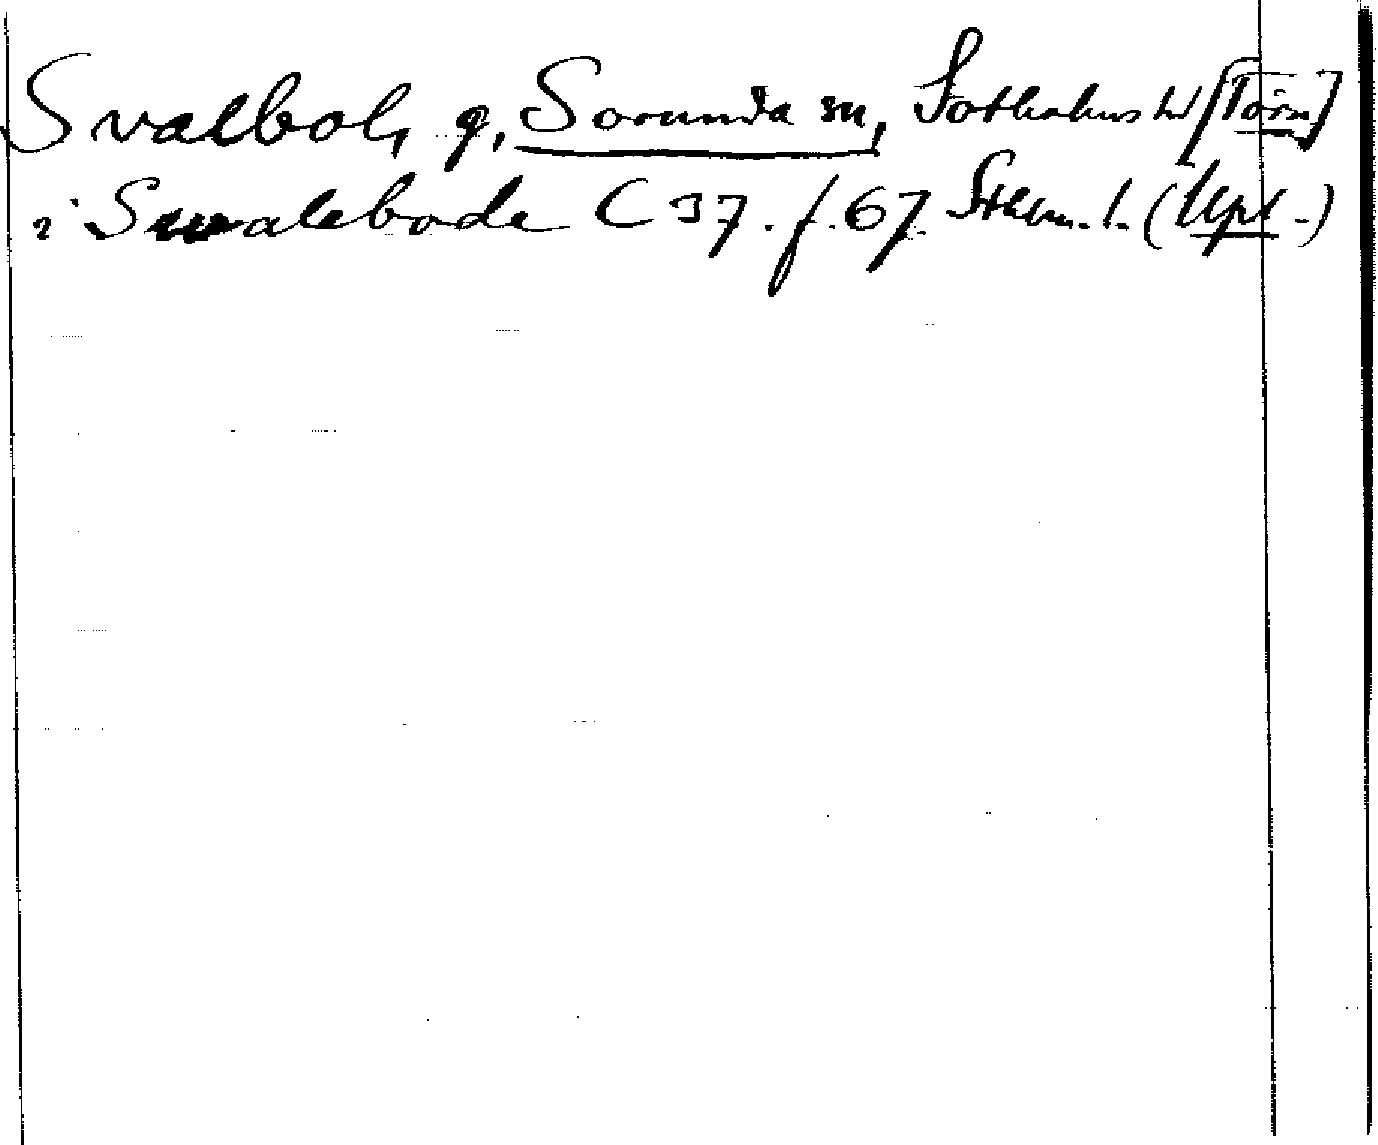 Svalbol, g, Sorunda sn, Sotholms hd [Törn]
i Swalebode C 37. f. 67. Sthlm. l. (Upl.)